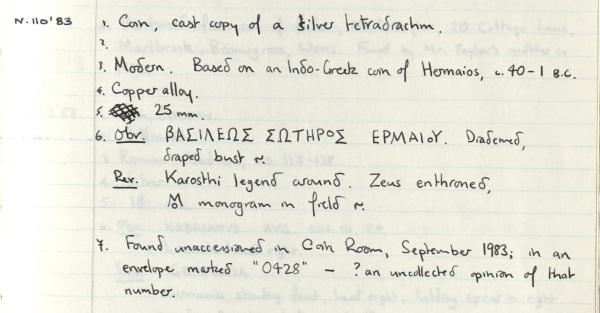 N.110'83 1. Coin, cast copy of a silver tetradrachm.
2.
3. Modern. Based on an Indo-Greek coin of Hermaios, c. 40-1 B.C.
4. Copper alloy.
5. 25 mm.
6. Obv. ΒΑΣΙΛΕΩΣ ΣΩΤΗΡΟΣ ΕΡΜΑΙΟΥ. Diademed,
draped bust r.
Rev. Karosthi legend around. Zeus enthroned,
monogram in field r.
7. Found unaccessioned in Coin Room, September 1983; in an
envelope marked "0428" - ? an uncollected opinion of that
number.